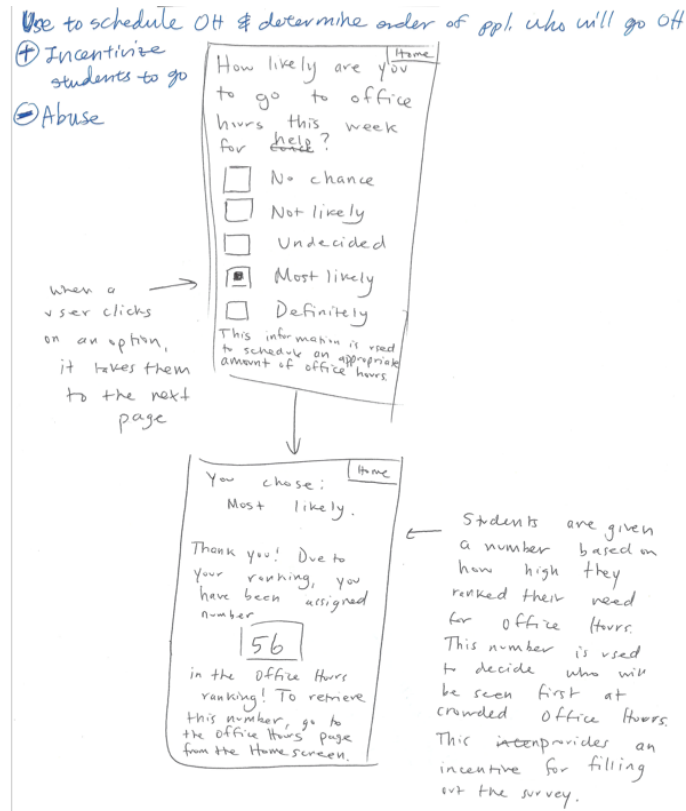 Use to schedule OH & determine order of ppl. who will go OH
⊕ Incentivize
students to go
⊖ Abuse
Home
How likely are you
to go to office
hours this week
for help?
No chance
Not likely
Undecided
Most likely
Definitely
This information is used
to schedule an appropriate
amount of office hours.
when a
user clicks
on an option,
it takes them
to the next
page
Home
You chose:
Most likely.
Thank you! Due to
your ranking, you
have been assigned
number
56
in the Office Hours
ranking! To retrieve
this number, go to
the Office Hours page
from the Home screen.
Students are given
a number based on
how high they
ranked their need
for Office Hours.
This number is used
to decide who will
be seen first at
crowded Office Hours.
This provides an
incentive for filling
out the survey.